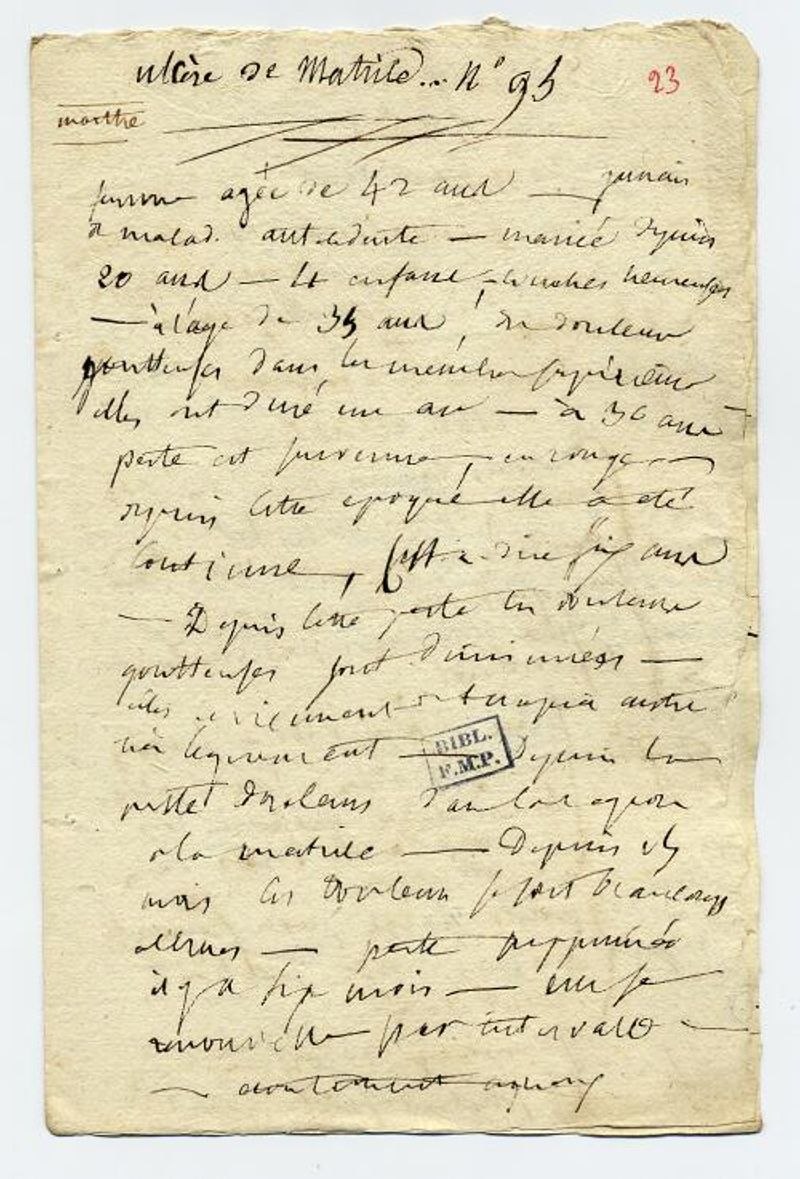 ulcère de Matrice... N° 95
23
marthe
femme agée de 42 ans — jamais
de malad. antecedente — mariée depuis
20 ans — 4 enfans — couches heureuses
— à l'age de 35 ans, des douleurs
goutteuses dans les membres supérieurs
elles ont duré un an — à 36 ans
perte est survenue, en rouge —
depuis cette epoque elle a été
continue, c'est a dire six ans
— Depuis cette perte les douleurs
goutteuses sont diminuées —
elles reviennent de temps à autre
très légèrement — Depuis la
perte douleurs dans la région
de la matrice — Depuis
mois les douleurs se sont beaucoup
accrues — perte supprimée
il y a six mois — elle se
renouvelle par intervalle —
— ecoulement
BIBL.
F.M.P.